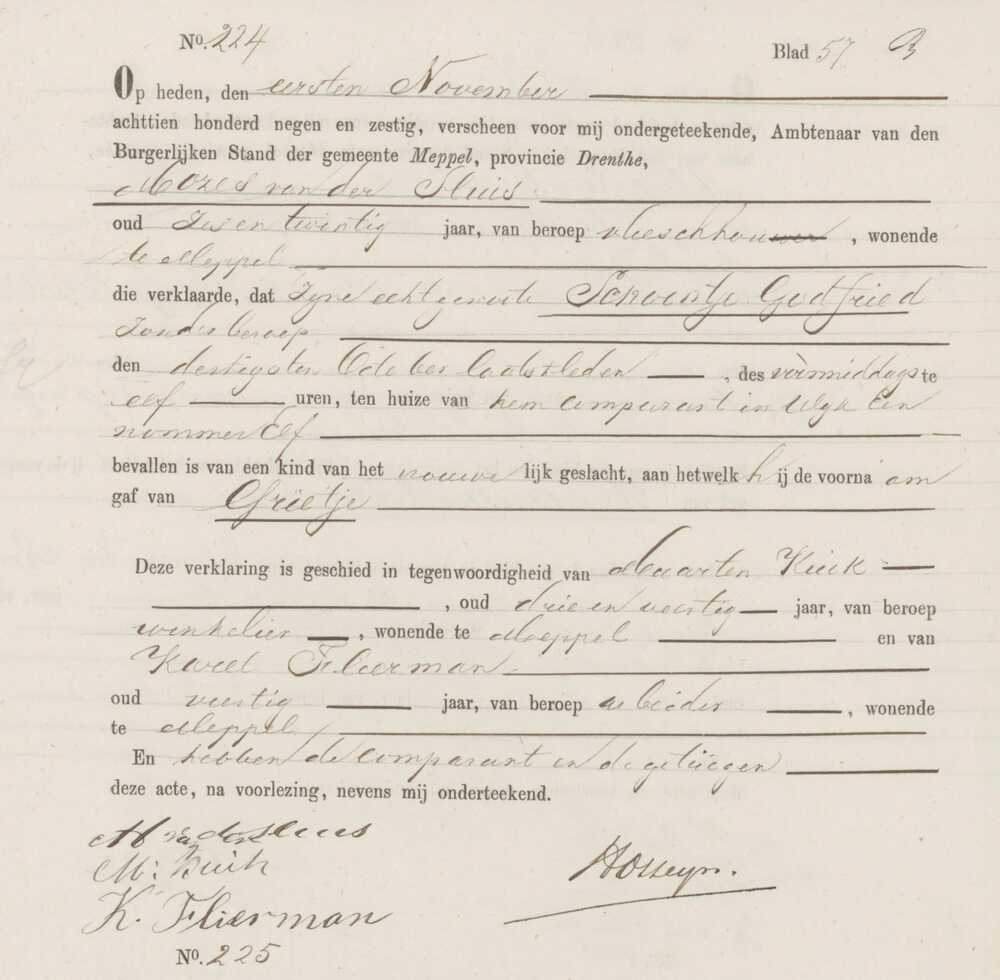 No. 224
Blad 57
Op heden, den eersten November
achttien honderd negen en zestig, verscheen voor mij ondergeteekende, Ambtenaar van den
Burgerlijken Stand der gemeente Meppel, provincie Drenthe,
Mozes van der Sluis
oud Zes en twintig jaar, van beroep vleeschhouwer, wonende
te Meppel
die verklaarde, dat Zyne echtgenoote Schoontje Godfried
Zonder beroep
den dertigsten October laatstleden, des vòormiddags te
elf uren, ten huize van hem comparant in wyk Een
nommer Elf
bevallen is van een kind van het vrouwelijk geslacht, aan hetwelk hij de voornaam
gaf van Grietje
Deze verklaring is geschied in tegenwoordigheid van Maarten Kuik
, oud drie en veertig jaar, van beroep
winkelier, wonende te Meppel en van
Karel Flierman
oud veertig jaar, van beroep arbeider, wonende
te Meppel
En hebben de comparant en de getuigen
deze acte, na voorlezing, nevens mij onderteekend.
M van der Sluis
M: Kuik
K. Flierman
No. 225